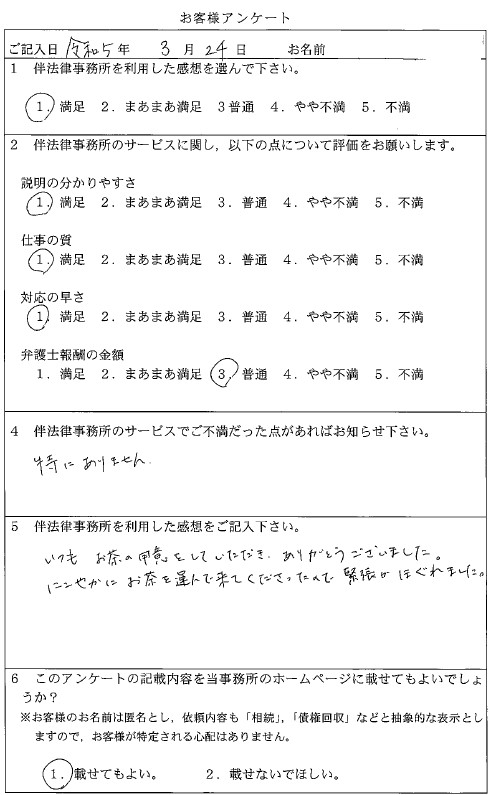 お客様アンケート
ご記入日 令和5年 3月 24日 お名前
1 伴法律事務所を利用した感想を選んで下さい。
1．満足 2．まあまあ満足 3 普通 4．やや不満 5．不満
2 伴法律事務所のサービスに関し，以下の点について評価をお願いします。
説明の分かりやすさ
1．満足 2．まあまあ満足 3．普通 4．やや不満 5．不満
仕事の質
1．満足 2．まあまあ満足 3．普通 4．やや不満 5．不満
対応の早さ
1．満足 2．まあまあ満足 3．普通 4．やや不満 5．不満
弁護士報酬の金額
1．満足 2．まあまあ満足 3．普通 4．やや不満 5．不満
4 伴法律事務所のサービスでご不満だった点があればお知らせ下さい。
特にありません．
5 伴法律事務所を利用した感想をご記入下さい。
いつも お茶の用意をしていただき、ありがとうございました。
にこやかに お茶を運んで来てくださったので 緊張が ほぐれました。
6 このアンケートの記載内容を当事務所のホームページに載せてもよいでしょ
うか？
※お客様のお名前は匿名とし，依頼内容も「相続」，「債権回収」などと抽象的な表示とし
ますので，お客様が特定される心配はありません。
1．載せてもよい。 2．載せないでほしい。